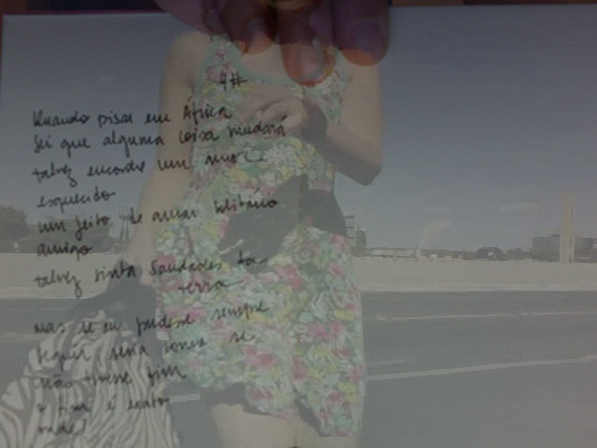 4#
Quando pisar em África
Sei que alguma coisa mudará
talvez encontre um
esquecido
um jeito de amar solitário
amigo
talvez sinta Saudades da
terra
mas se eu pudesse sempre
seguir seria como se
não tivesse fim
o fim é
onde?